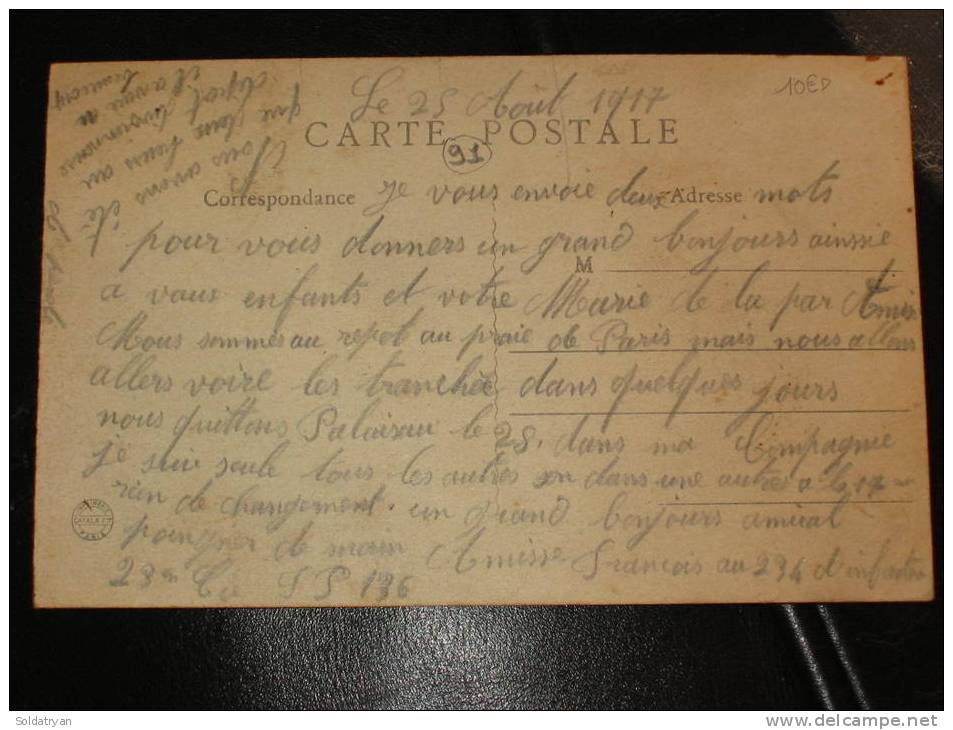 Le 25 Août 1917
10€D
CARTE POSTALE
91
Correspondance
Adresse
M
je vous envoie deux mots
pour vous donners un grand bonjours ainssie
a vous enfants et votre Marie de la par Amis
Nous sommes au repot au praie de Paris mais nous allons
allers voire les tranchée dans quelques jours
nous quittons Palaiseau le 28. dans ma Compagnie
je suis seule tous les autres son dans une autres a la 17
rien de changement. un grand bonjours amical
poingner de main Amisse Francois au 234 d'infantrie
23 em Cie SP 136
Vous avons été
que deux jours au
depot divisionnaire
il a venu a
CAYALA
PARIS
Soldatryan
www.delcampe.net